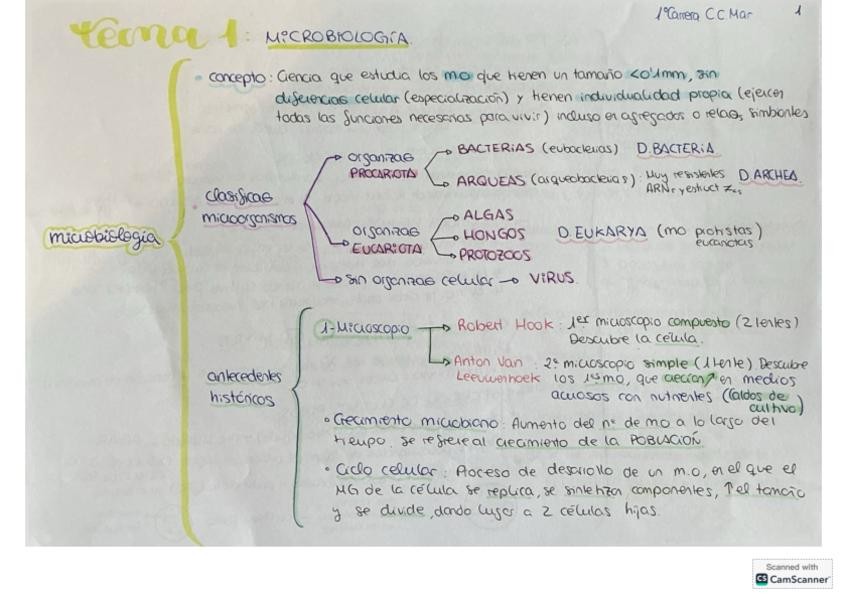 1º Carrera CC Mar 1
Tema 1: MICROBIOLOGÍA.
concepto: Ciencia que estudia los mo que tienen un tamaño <0'1mm, sin
diferenciac celular (especialización) y tienen individualidad propia (ejercen
todas las funciones necesarias para vivir) incluso en agregados o relac simbontes
microbiología
clasificac
microorganismos
organizac
PROCARIOTA
BACTERIAS (eubacterias) D. BACTERIA
ARQUEAS (arqueobacterias): Muy resistentes D. ARCHEA
ARNr y estruct ≠
organizac
EUCARIOTA
ALGAS
HONGOS
PROTOZOOS
D. EUKARYA (mo protistas)
eucariotas
sin organizac celular → VIRUS.
antecedentes
históricos
1-Microscopio
Robert Hook: 1er microscopio compuesto (2 lentes)
Descubre la célula.
Anton Van : 2º microscopio simple (1 lente) Descubre
Leeuwenhoek los 1os mo, que crecían en medios
acuosos con nutrientes (Caldos de
cultivo)
• Crecimiento microbiano: Aumento del nº de mo a lo largo del
tiempo. se refiere al crecimiento de la POBLACIÓN
• Ciclo celular: Proceso de desarrollo de un m.o, en el que el
MG de la célula se replica, se sintetizan componentes, ↑ el tamaño
y se divide, dando lugar a 2 células hijas.
Scanned with
CS CamScanner